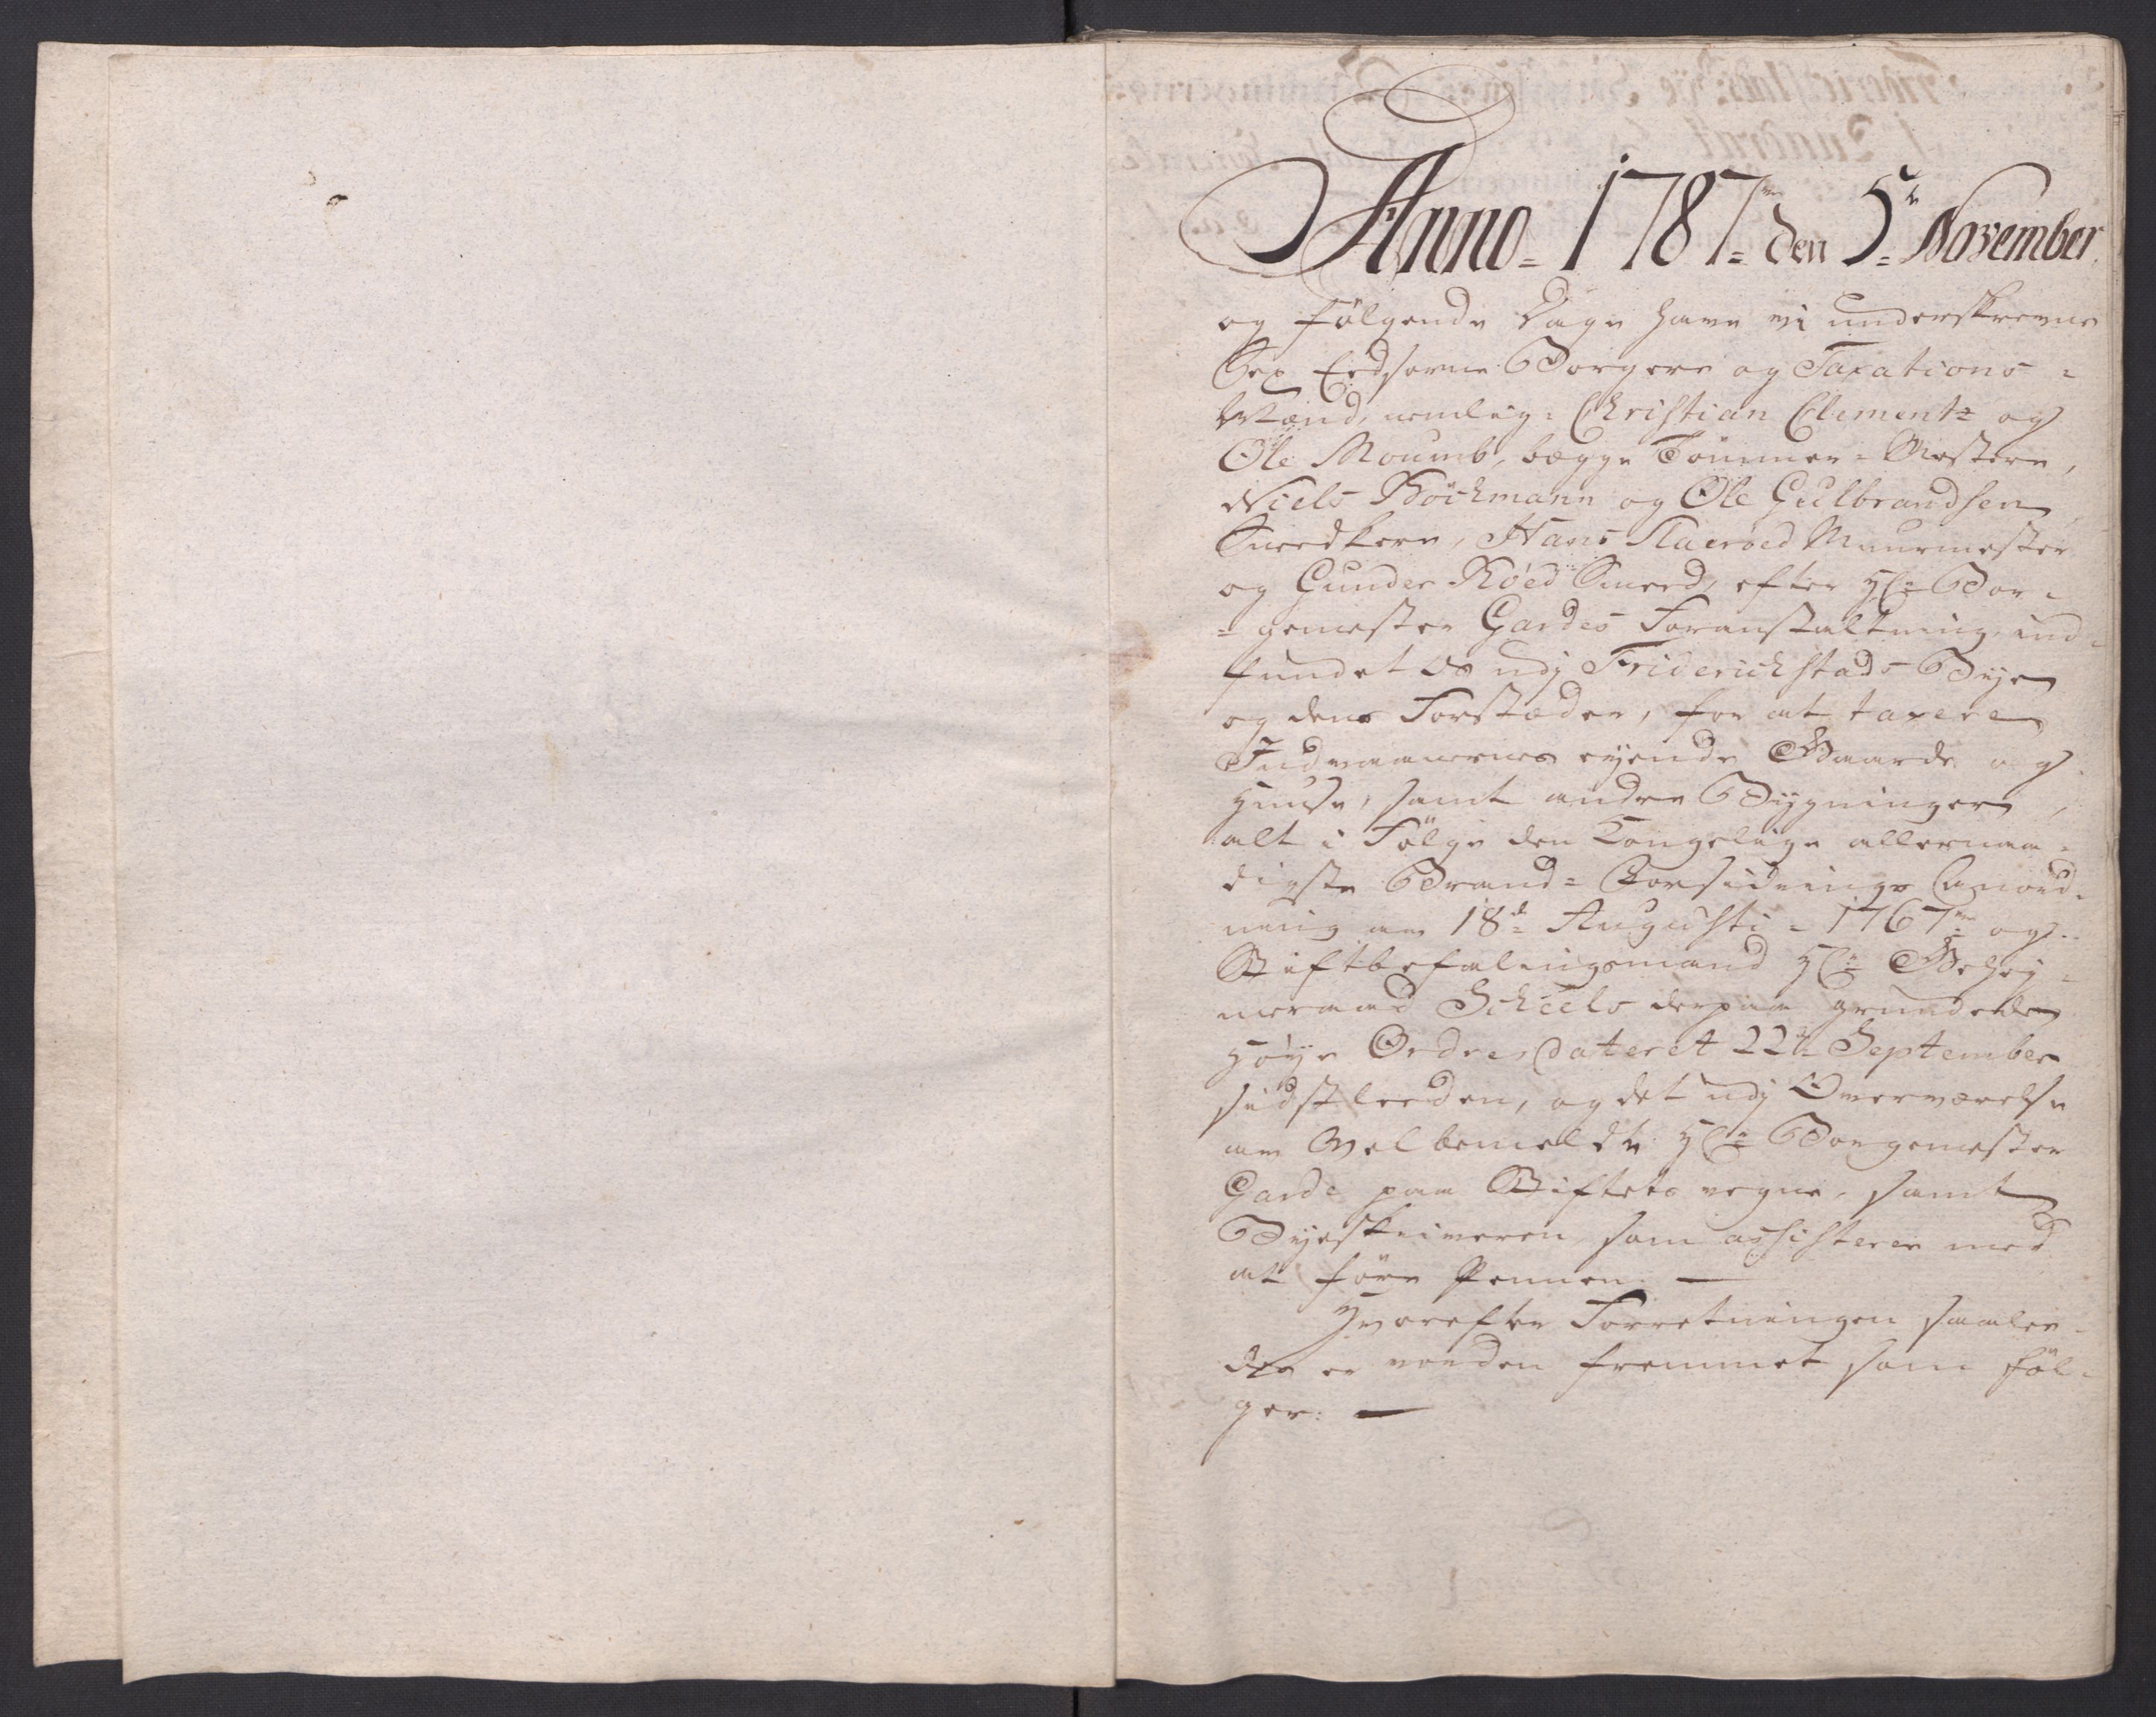 Anno = 1787 = den 5te November
og følgende Dage have vi underskrevne
Sex Eedsorne Borgere og Taxations =
Mænd, nemlig: Christian Clementz og
Ole Moumb, begge Tømmer = Mestere,
Niels Böckmann og Ole Gulbrandsen
Sneedkere, Hans Muurmester
og Gunder Röed Smeed, efter Hr = Bor =
= gemester Gardes Foranstaltning, ind =
fundet os udj Friderichstads Bye
og dens Forstæder, for at taxere
Indvaanernes eyende Gaarde og
Huuse, samt andre Bygninger,
alt i Følge den Kongelige allernaa =
digste Brand = Forsikrings Anord =
ning av 18de Augusti = 1767 = og
Stiftbefalingsmand Hr = Gehej =
meraad Scheels derpaa grundede
Høye Ordre, dateret 22de September
sidstleeden, og det udj Overværelse
av Velbemeldte Hr = Borgemester
Garde paa Stiftets vegne, samt
Byeskriveren som assisterer med
at føre Pennen. —
Hvorefter Forretningen saale =
des er vorden fremmet som føl =
ger: —